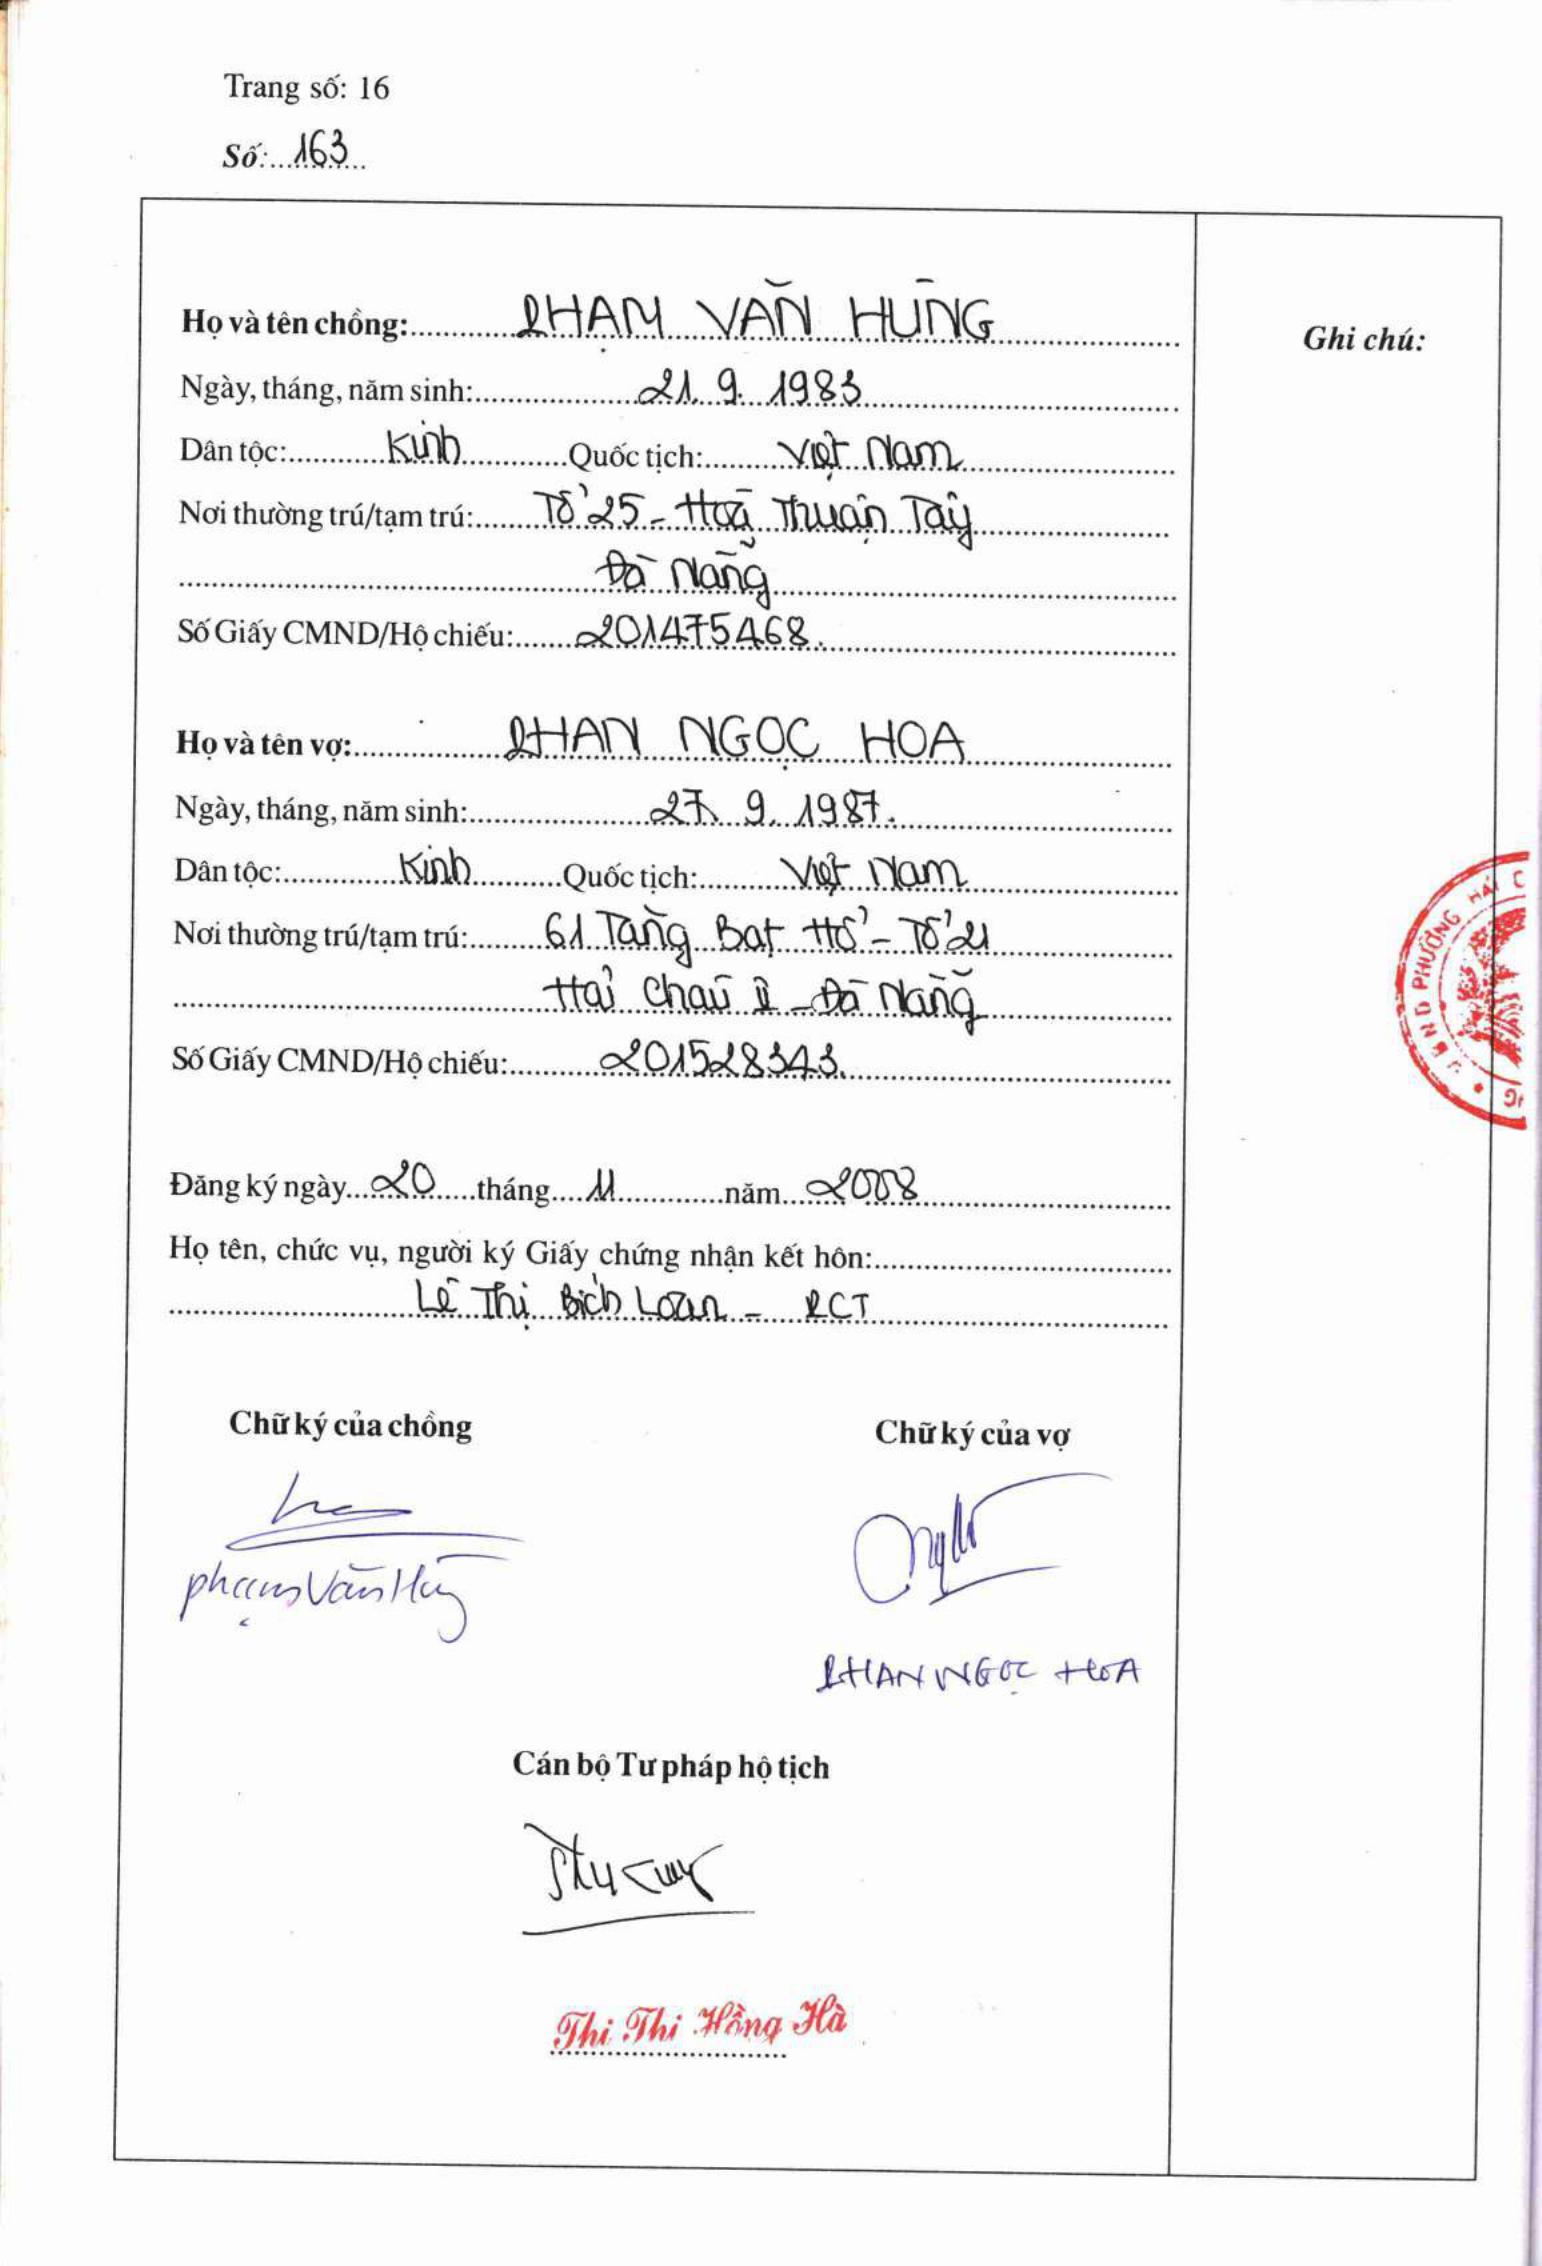 Trang số: 16
Số: 163
Họ và tên chồng: PHẠM VĂN HÙNG
Ghi chú:
Ngày, tháng, năm sinh: 21. 9. 1983
Dân tộc: Kinh Quốc tịch: Việt Nam
Nơi thường trú/tạm trú: Tổ 25 - Hoà Thuận Tây
Đà Nẵng
Số Giấy CMND/Hộ chiếu: 201475468.
Họ và tên vợ: PHAN NGỌC HOA
Ngày, tháng, năm sinh: 27. 9. 1987.
Dân tộc: Kinh Quốc tịch: Việt Nam
Nơi thường trú/tạm trú: 61 Tăng Bạt Hổ - Tổ 21
Hải Châu II - Đà Nẵng
Số Giấy CMND/Hộ chiếu: 201528343.
Đăng ký ngày 20 tháng 11 năm 2008
Họ tên, chức vụ, người ký Giấy chứng nhận kết hôn:
Lê Thị Bích Loan - PCT
Chữ ký của chồng
Chữ ký của vợ
Phạm Văn Hùng
PHAN NGỌC HOA
Cán bộ Tư pháp hộ tịch
Thi Thi Hồng Hà
U.B.N.D PHƯỜNG HẢI C